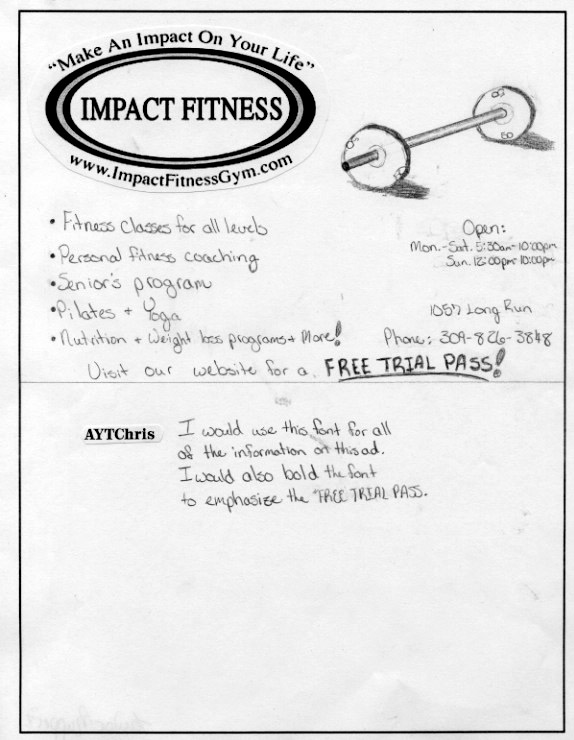 "Make An Impact On Your Life"
IMPACT FITNESS
www.ImpactFitnessGym.com
• Fitness classes for all levels
• Personal fitness coaching
• Senior's program
• Pilates + Yoga
• Nutrition + Weight loss programs + More!
Open:
Mon.-Sat. 5:30am-10:00pm
Sun. 12:00pm-10:00pm
1057 Long Run
Phone: 309-826-3848
Visit our website for a FREE TRIAL PASS!
AYTChris
I would use this font for all
of the information on this ad.
I would also bold the font
to emphasize the "FREE TRIAL PASS.